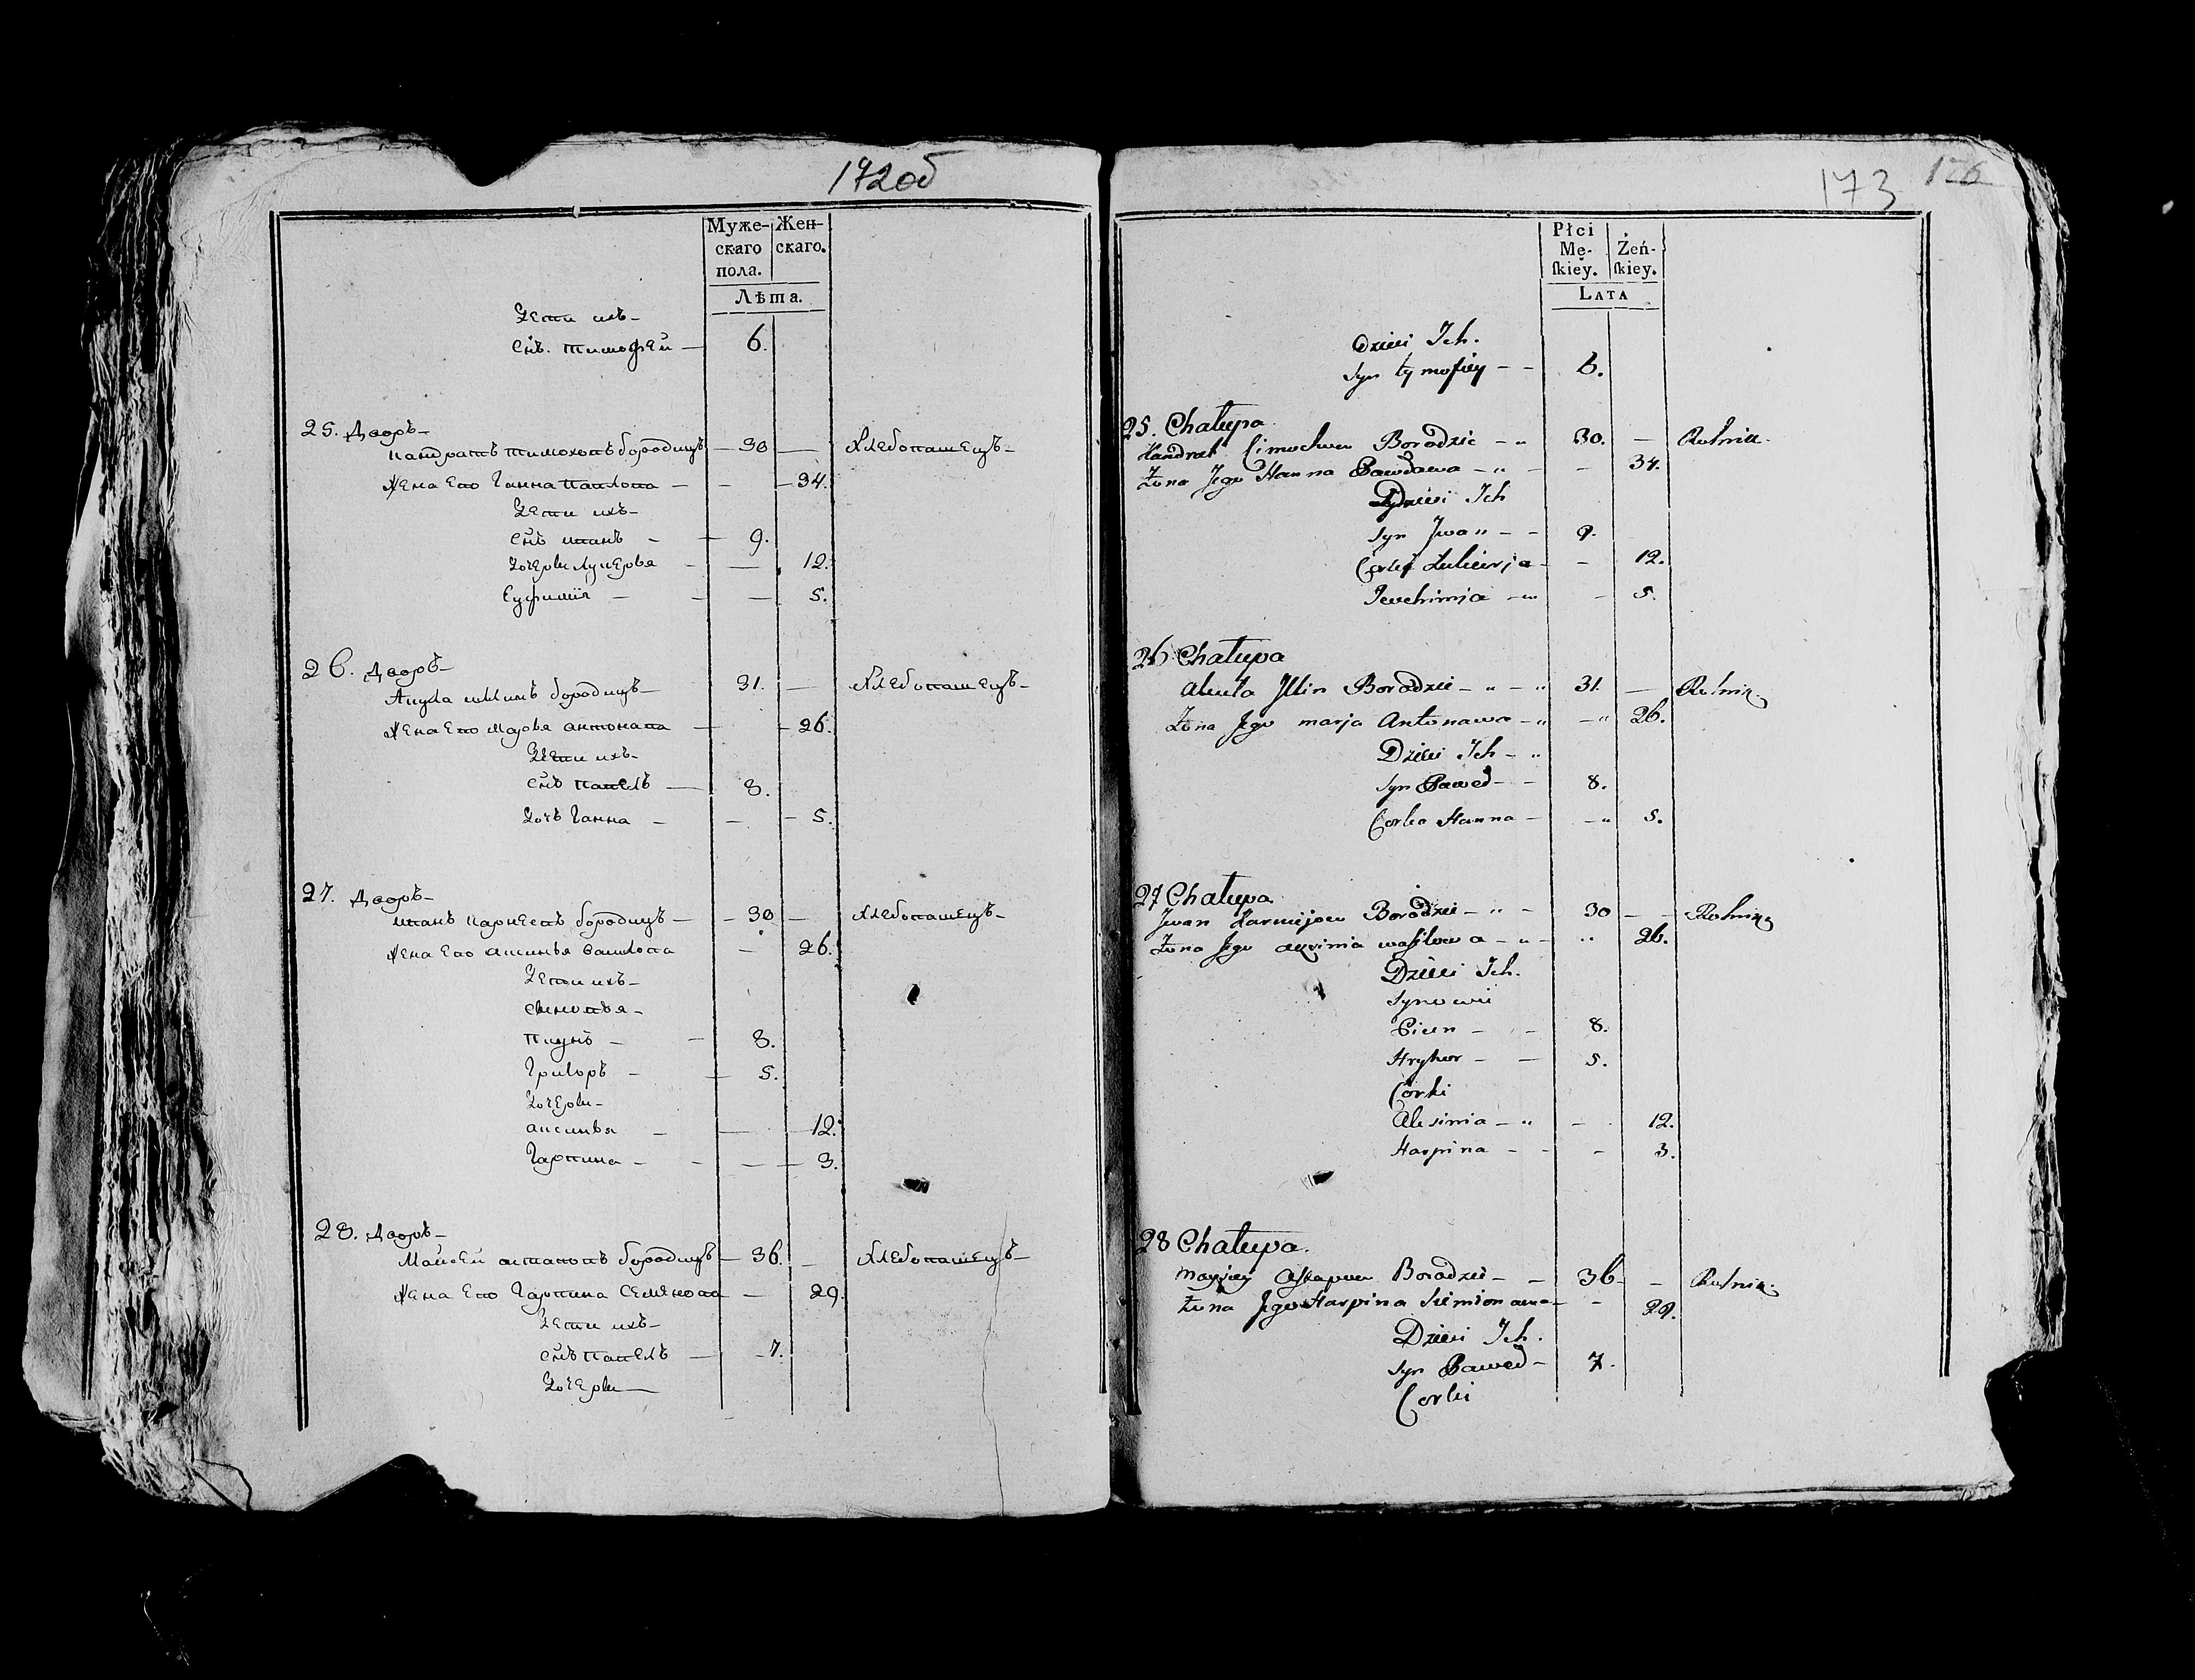 172об
Муже-
скаго
пола.
Жен-
скаго.
Лѣта.
Дети ихъ
Снъ. Тимофей 6.
25. Дворъ
Кандратъ Тимоховъ Бородичъ 30 Хлебопашецъ
Жена Его Ганна Павлова 34.
Дети ихъ
Снъ Иванъ 9.
Дочери Лукерья 12.
Еуфимiя 5.
26. Дворъ
Акула Иллинъ Бородичъ 31. Хлебопашецъ
Жена Его Марья Антонава 26.
Дети ихъ
Снъ Павелъ 8.
Дочь Ганна 5.
27. Дворъ
Иванъ Бородичъ 30 Хлебопашецъ
Жена Его Аксинья Василова 26.
Дети ихъ
Сыновья
Пиунъ 8.
Григоръ 5.
Дочери
Аксинья 12.
Гарпина 3.
28. Дворъ
Майсей Астаповъ Бородичъ 36. Хлебопашецъ
Жена Его Гарпина Семёнова 29.
Дети ихъ
Снъ Павелъ 7.
Дочери
173 176
Płci
Mę-
ſkiey.
Żeń-
ſkiey.
LATA
Dzieci Ich.
Syn tymofiey 6.
25. Chałupa
Kandrat Cimochow Borodzic 30. Rolnik
Żona Jego Hanna Pawłowa 34.
Dzieci Ich
Syn Jwan 9.
Corki Łukierja 12.
Jewchimia 5.
26 Chałupa
Akuła Jllin Borodzic 31. Rolnik
Żona Jego marja Antonawa 26.
Dzieci Ich
Syn Paweł 8.
Corka Hanna 5.
27 Chałupa
Jwan Karniejew Borodzic 30 Rolnik
Żona Jego axsinia wasilowa 26.
Dzieci Ich.
Synowie
Piun 8.
Hryhor 5.
Corki
Aksinia 12.
Harpina 3.
28 Chałupa.
Maysiey Astapow Borodzic 36 Rolnik
Żona Jego Harpina Siemionawa 29.
Dzieci Ich.
Syn Paweł 7.
Corki